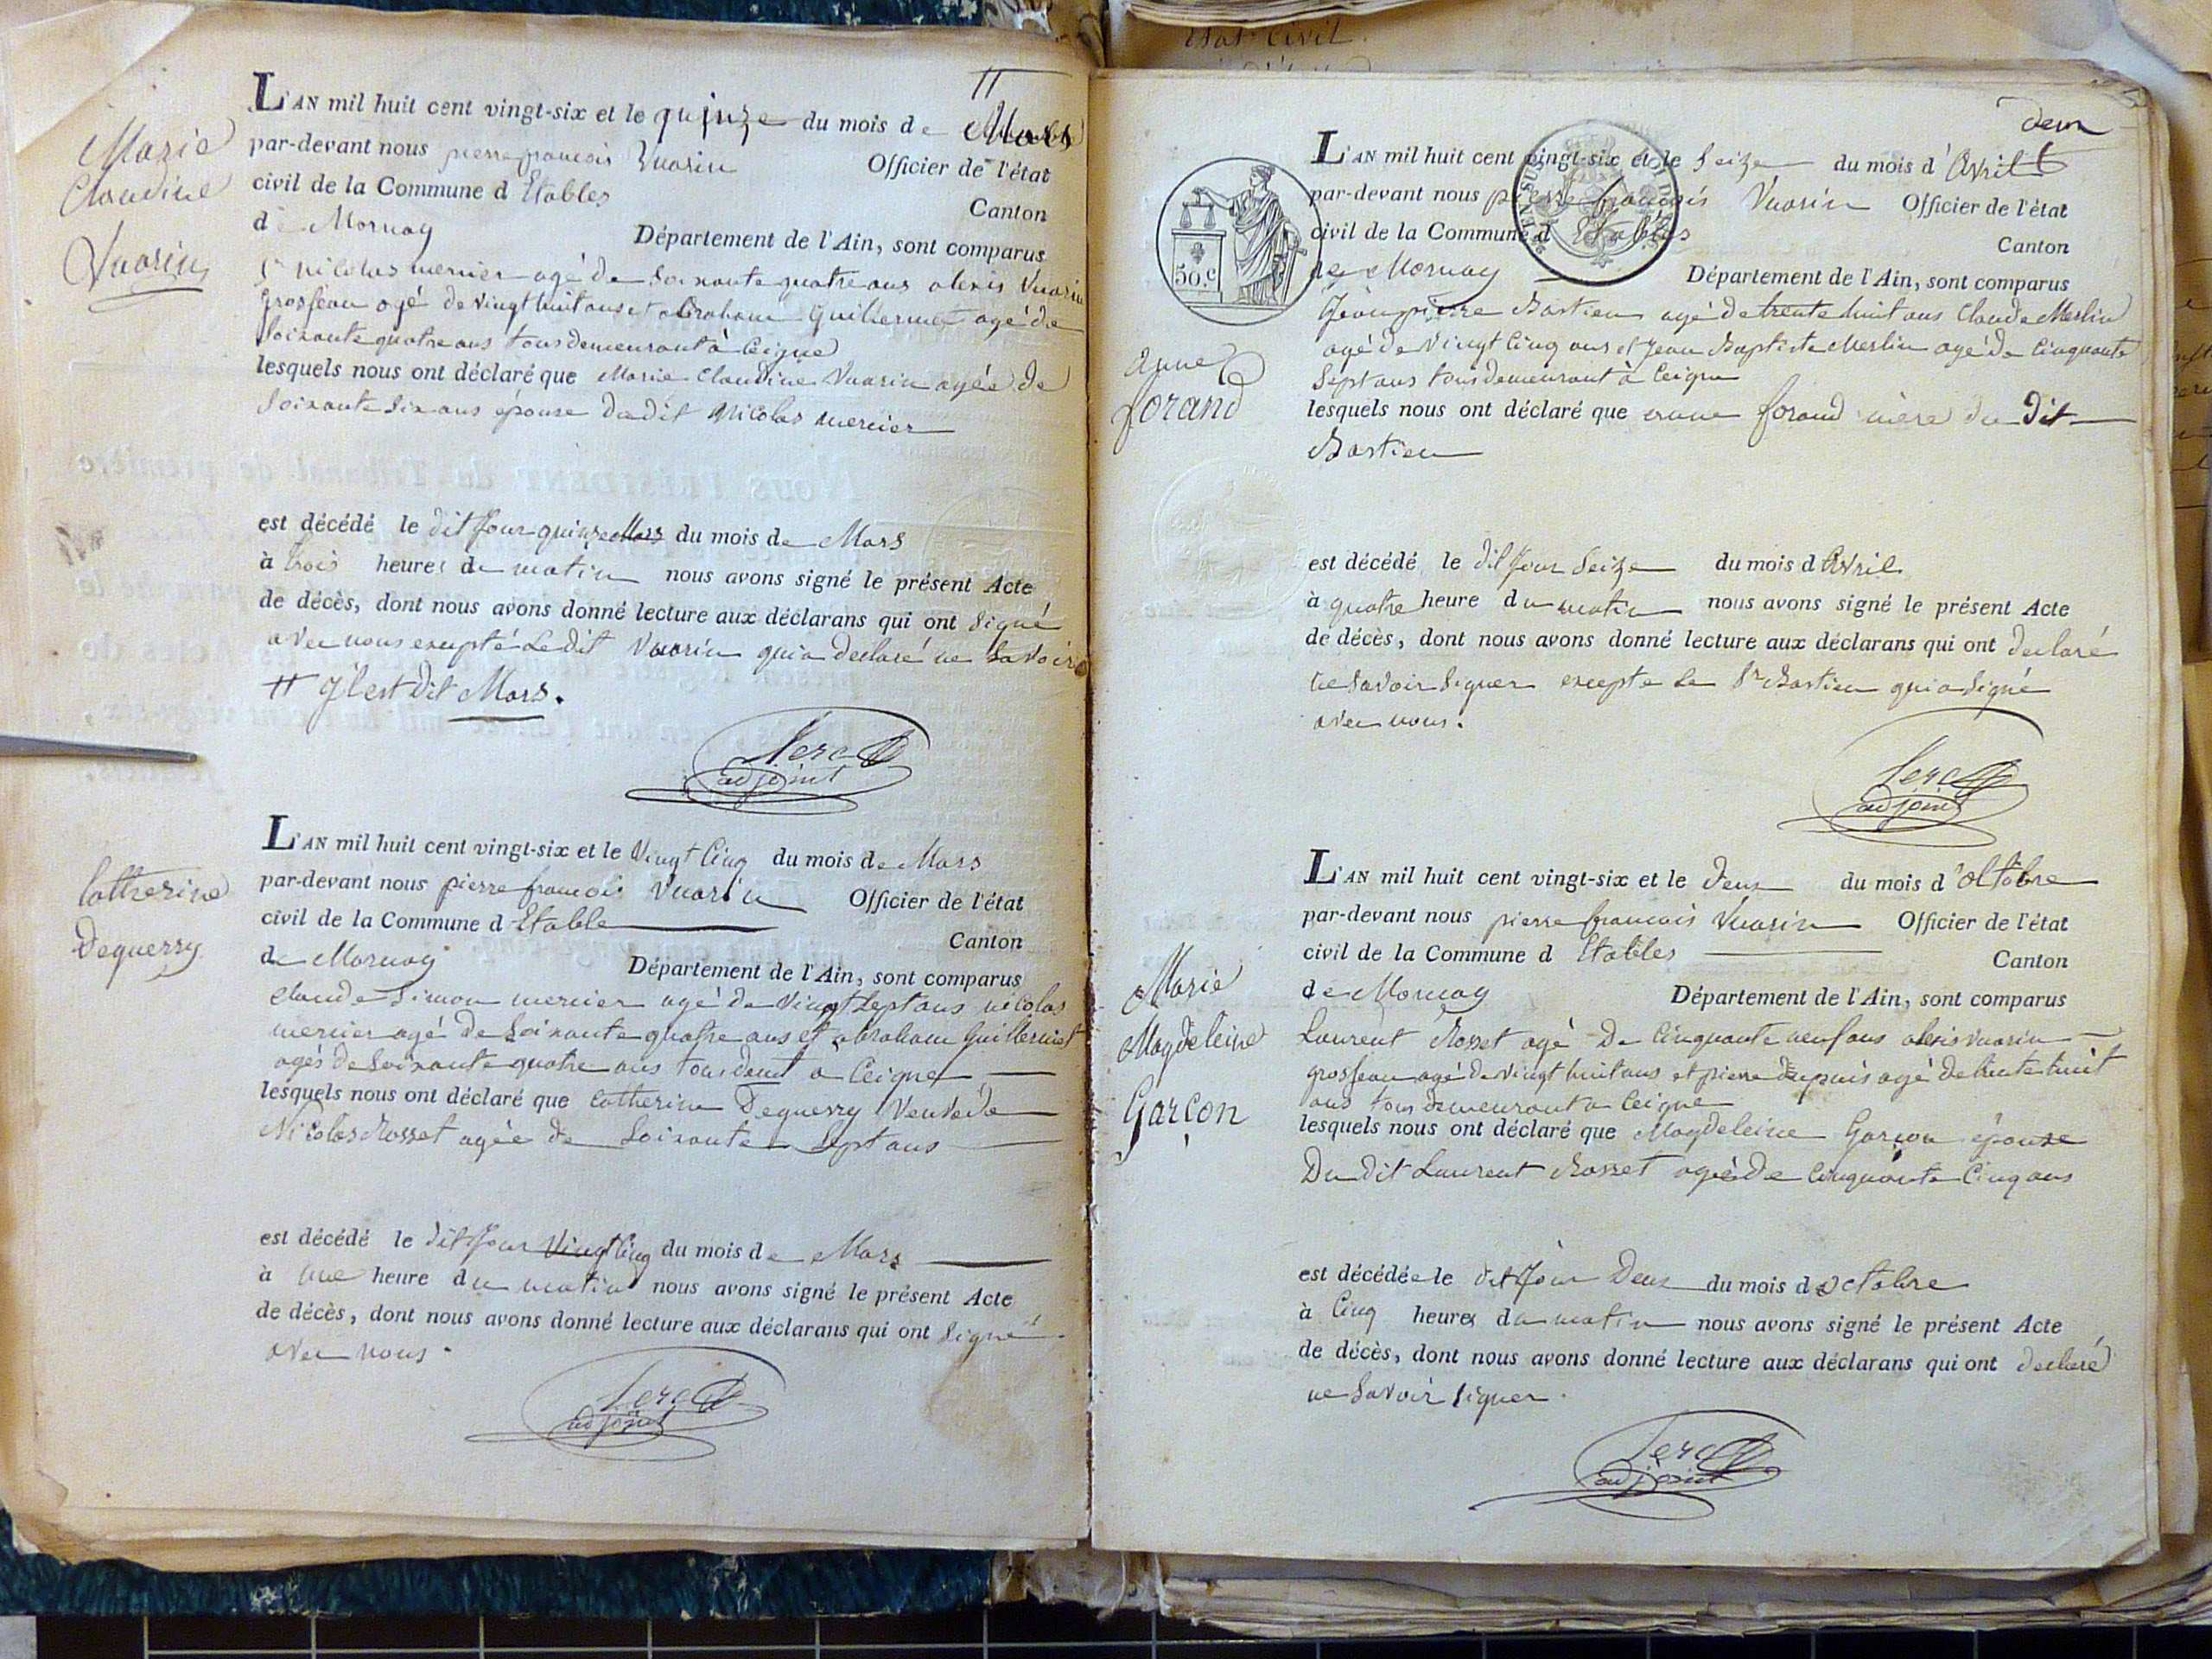 Etat Civil
Marie
Claudine
Vuarin
#
L'AN mil huit cent vingt-six et le quinze du mois de Mars
par-devant nous pierre francois Vuarin Officier de l'état
civil de la Commune d Etables Canton
de Mornay Département de l'Ain, sont comparus
Sr nicolas mercier agé de soixante quatre ans alexis Vuarin
grosfeau agé de vingt huit ans et abraham Guillermet agé de
soixante quatre ans tous demeurant à Ceigne
lesquels nous ont déclaré que Marie Claudine Vuarin agée de
soixante six ans épouse du dit Nicolas mercier
est décédé le dit jour quinze Mars du mois de Mars
à trois heures du matin nous avons signé le présent Acte
de décès, dont nous avons donné lecture aux déclarans qui ont signé
avec nous excepté Le dit Vuarin qui a declaré ne Savoir
# Il est dit Mars.
adjoint
Catherine
Deguerry
L'AN mil huit cent vingt-six et le Vingt Cinq du mois de Mars
par-devant nous pierre francois Vuarin Officier de l'état
civil de la Commune d Etable Canton
de Mornay Département de l'Ain, sont comparus
Claude Simon mercier agé de vingt Sept ans nicolas
mercier agé de Soixante quatre ans et abraham Guillermet
agés de Soixante quatre ans tous demt a Ceigne
lesquels nous ont déclaré que Catherine Deguerry Veuve de
Nicolas Rosset agée de Soixante Sept ans
est décédé le dit jour Vingt Cinq du mois de Mars
à une heure du matin nous avons signé le présent Acte
de décès, dont nous avons donné lecture aux déclarans qui ont Signé
avec nous.
adjoint
deux
50.c
anne
forand
L'AN mil huit cent vingt-six et le Seize du mois d'Avril
par-devant nous pierre francois Vuarin Officier de l'état
civil de la Commune d Etables Canton
de Mornay Département de l'Ain, sont comparus
Jean pierre Bastien agé de trente huit ans Claude Merlin
agé de Vingt Cinq ans et Jean Baptiste Merlin agé de Cinquante
Sept ans tous demeurant à Ceigne
lesquels nous ont déclaré que anne forand mère du Dit
Bastien
est décédé le dit jour Seize du mois d Avril
à quatre heure du matin nous avons signé le présent Acte
de décès, dont nous avons donné lecture aux déclarans qui ont declaré
ne Savoir Signer excepté Le Sr Bastien qui a Signé
avec nous.
adjoint
Marie
Magdeleine
Garçon
L'AN mil huit cent vingt-six et le deux du mois d'octobre
par-devant nous pierre francois Vuarin Officier de l'état
civil de la Commune d Etables Canton
de Mornay Département de l'Ain, sont comparus
Laurent Rosset agé De Cinquante neuf ans alexis vuarin
grosfeau agé de vingt huit ans et pierre Dupuis agé de trente huit
ans tous demeurant a Ceigne
lesquels nous ont déclaré que Magdeleine Garçon épouse
Du dit Laurent Rosset agée De Cinquante Cinq ans
est décédée le dit Jour Deux du mois d octobre
à Cinq heures du matin nous avons signé le présent Acte
de décès, dont nous avons donné lecture aux déclarans qui ont declaré
ne Savoir Signer.
adjoint